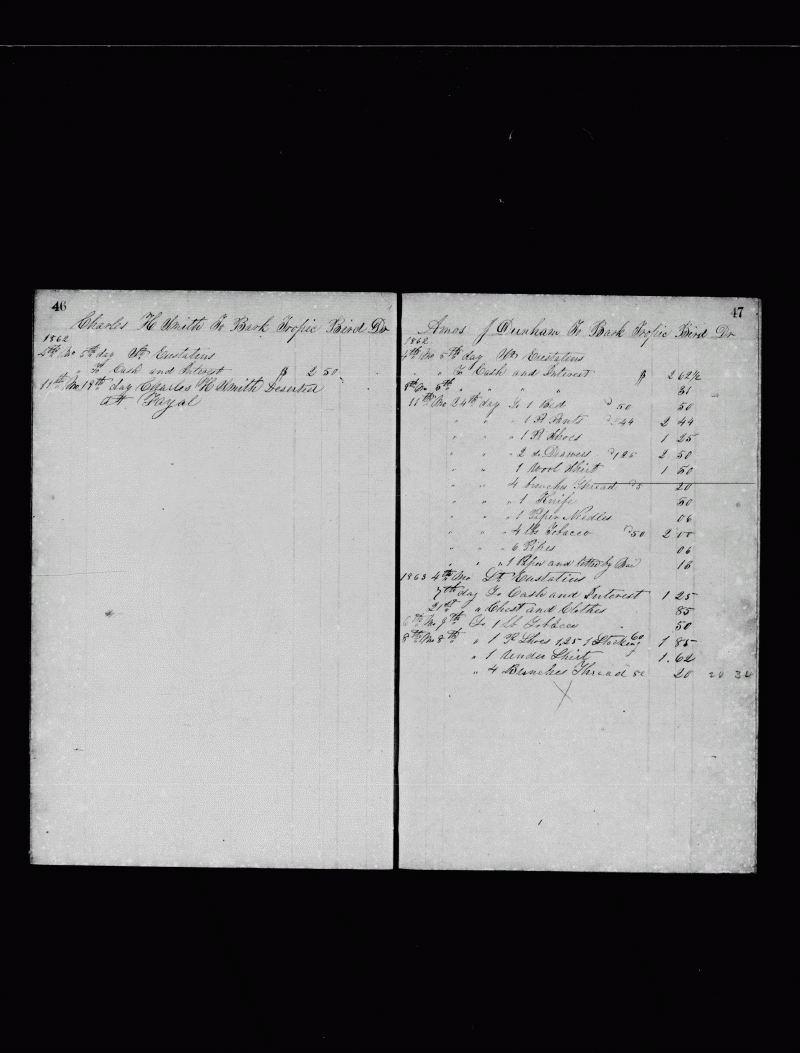 46
Charles H Smith To Bark Tropic Bird Dr
1862
4th Mo 5th day St Eustatius
" " To Cash and Interest $ 2 50
11th Mo 18th day Charles H Smith Deserted
att Fayal
47
Amos J Dunham To Bark Tropic Bird Dr
1862
4th Mo 5th day St Eustatius
" " To Cash and Interest $ 2 62½
8th Mo 6th " " " 31
11th Mo 24th day To 1 Bed 50 50
" " " 1 P Pants 2 44
" " " 1 P Shoes 1 25
" " " 2 do Drawers 125 2 50
" " 1 Wool Shirt 1 50
" " 4 bunches Thread 5 20
" " " 1 Knife 50
" " " 1 Paper Needles 06
" " " 4 lbs Tobacco 50 2 00
" " " 6 Pipes 06
" " " 1 Paper and letter by 16
1863 4th Mo St Eustatius
7th day To Cash and Interest 1 25
21st " " Chest and Clothes 85
6th Mo 9th To 1 lb Tobacco 50
8th Mo 8th " 1 P Shoes 1,25 1 Stocking 60 1 85
" 1 Under Shirt 1.62
" 4 Bunches Thread 5c 20 20 34